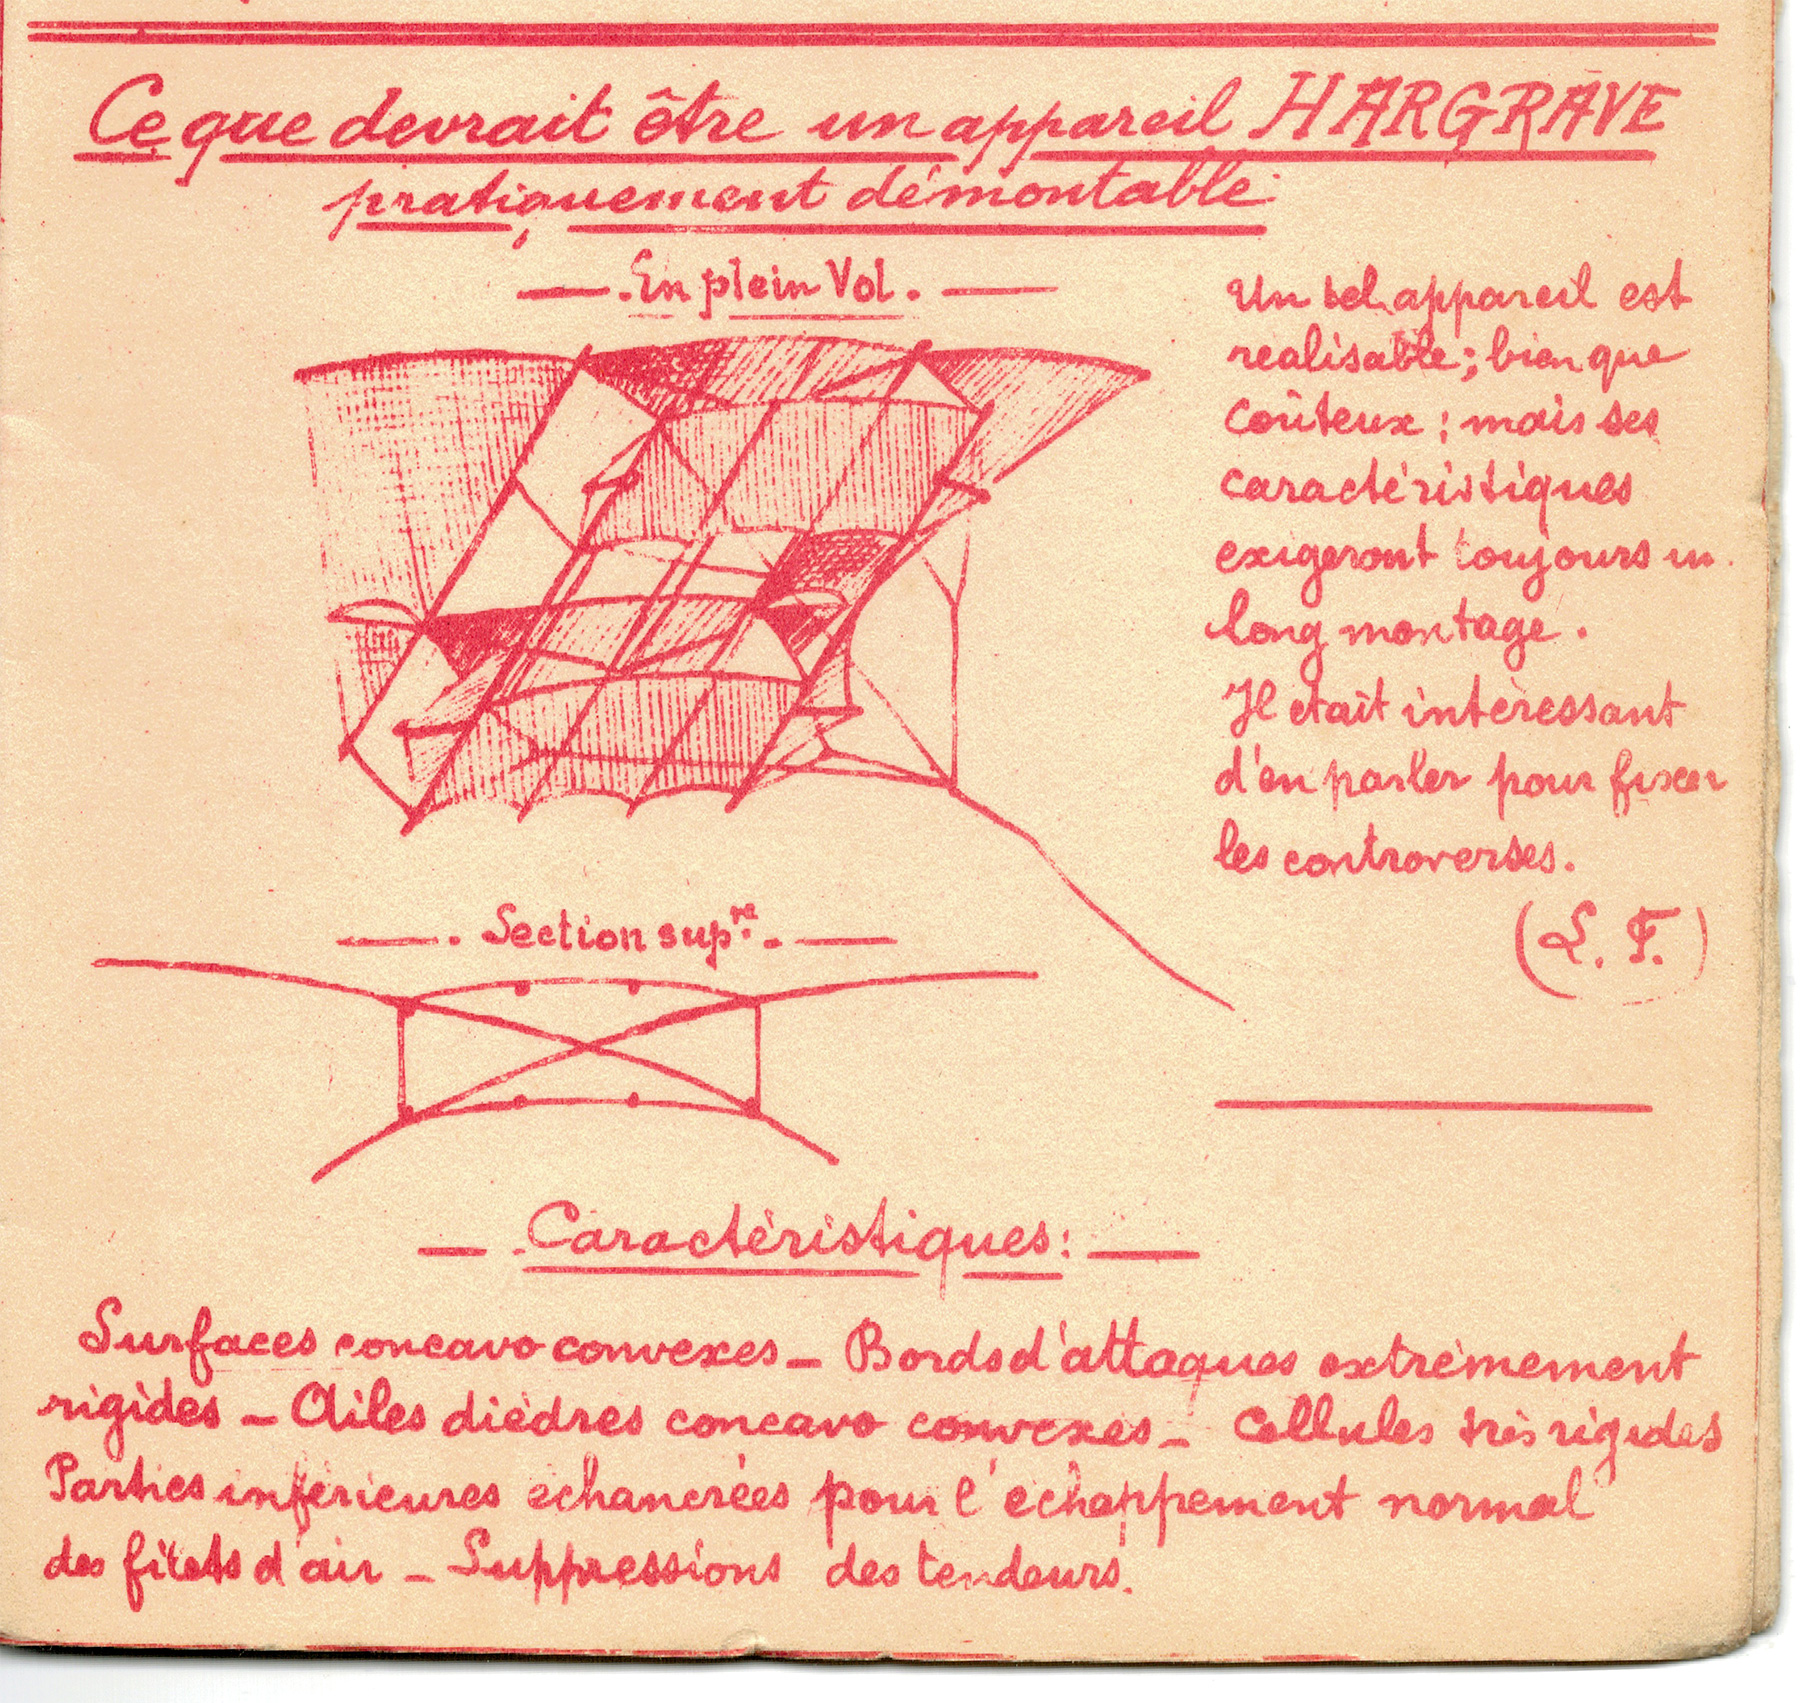 Ce que devrait être un appareil HARGRAVE
pratiquement démontable
En plein Vol.
Un tel appareil est
realisable; bien que
coûteux : mais ses
caractéristiques
exigeront toujours un
long montage.
Il etait intéressant
d'en parler pour fixer
les controverses.
(L. F.)
Section sup.re
Caractéristiques:
Surfaces concavo convexes _ Bords d'attaques extrêmement
rigides _ Ailes dièdres concavo convexes _ Cellules très rigides
Parties inférieures echancrées pour l'échappement normal
des filets d'air _ Suppressions des tendeurs.